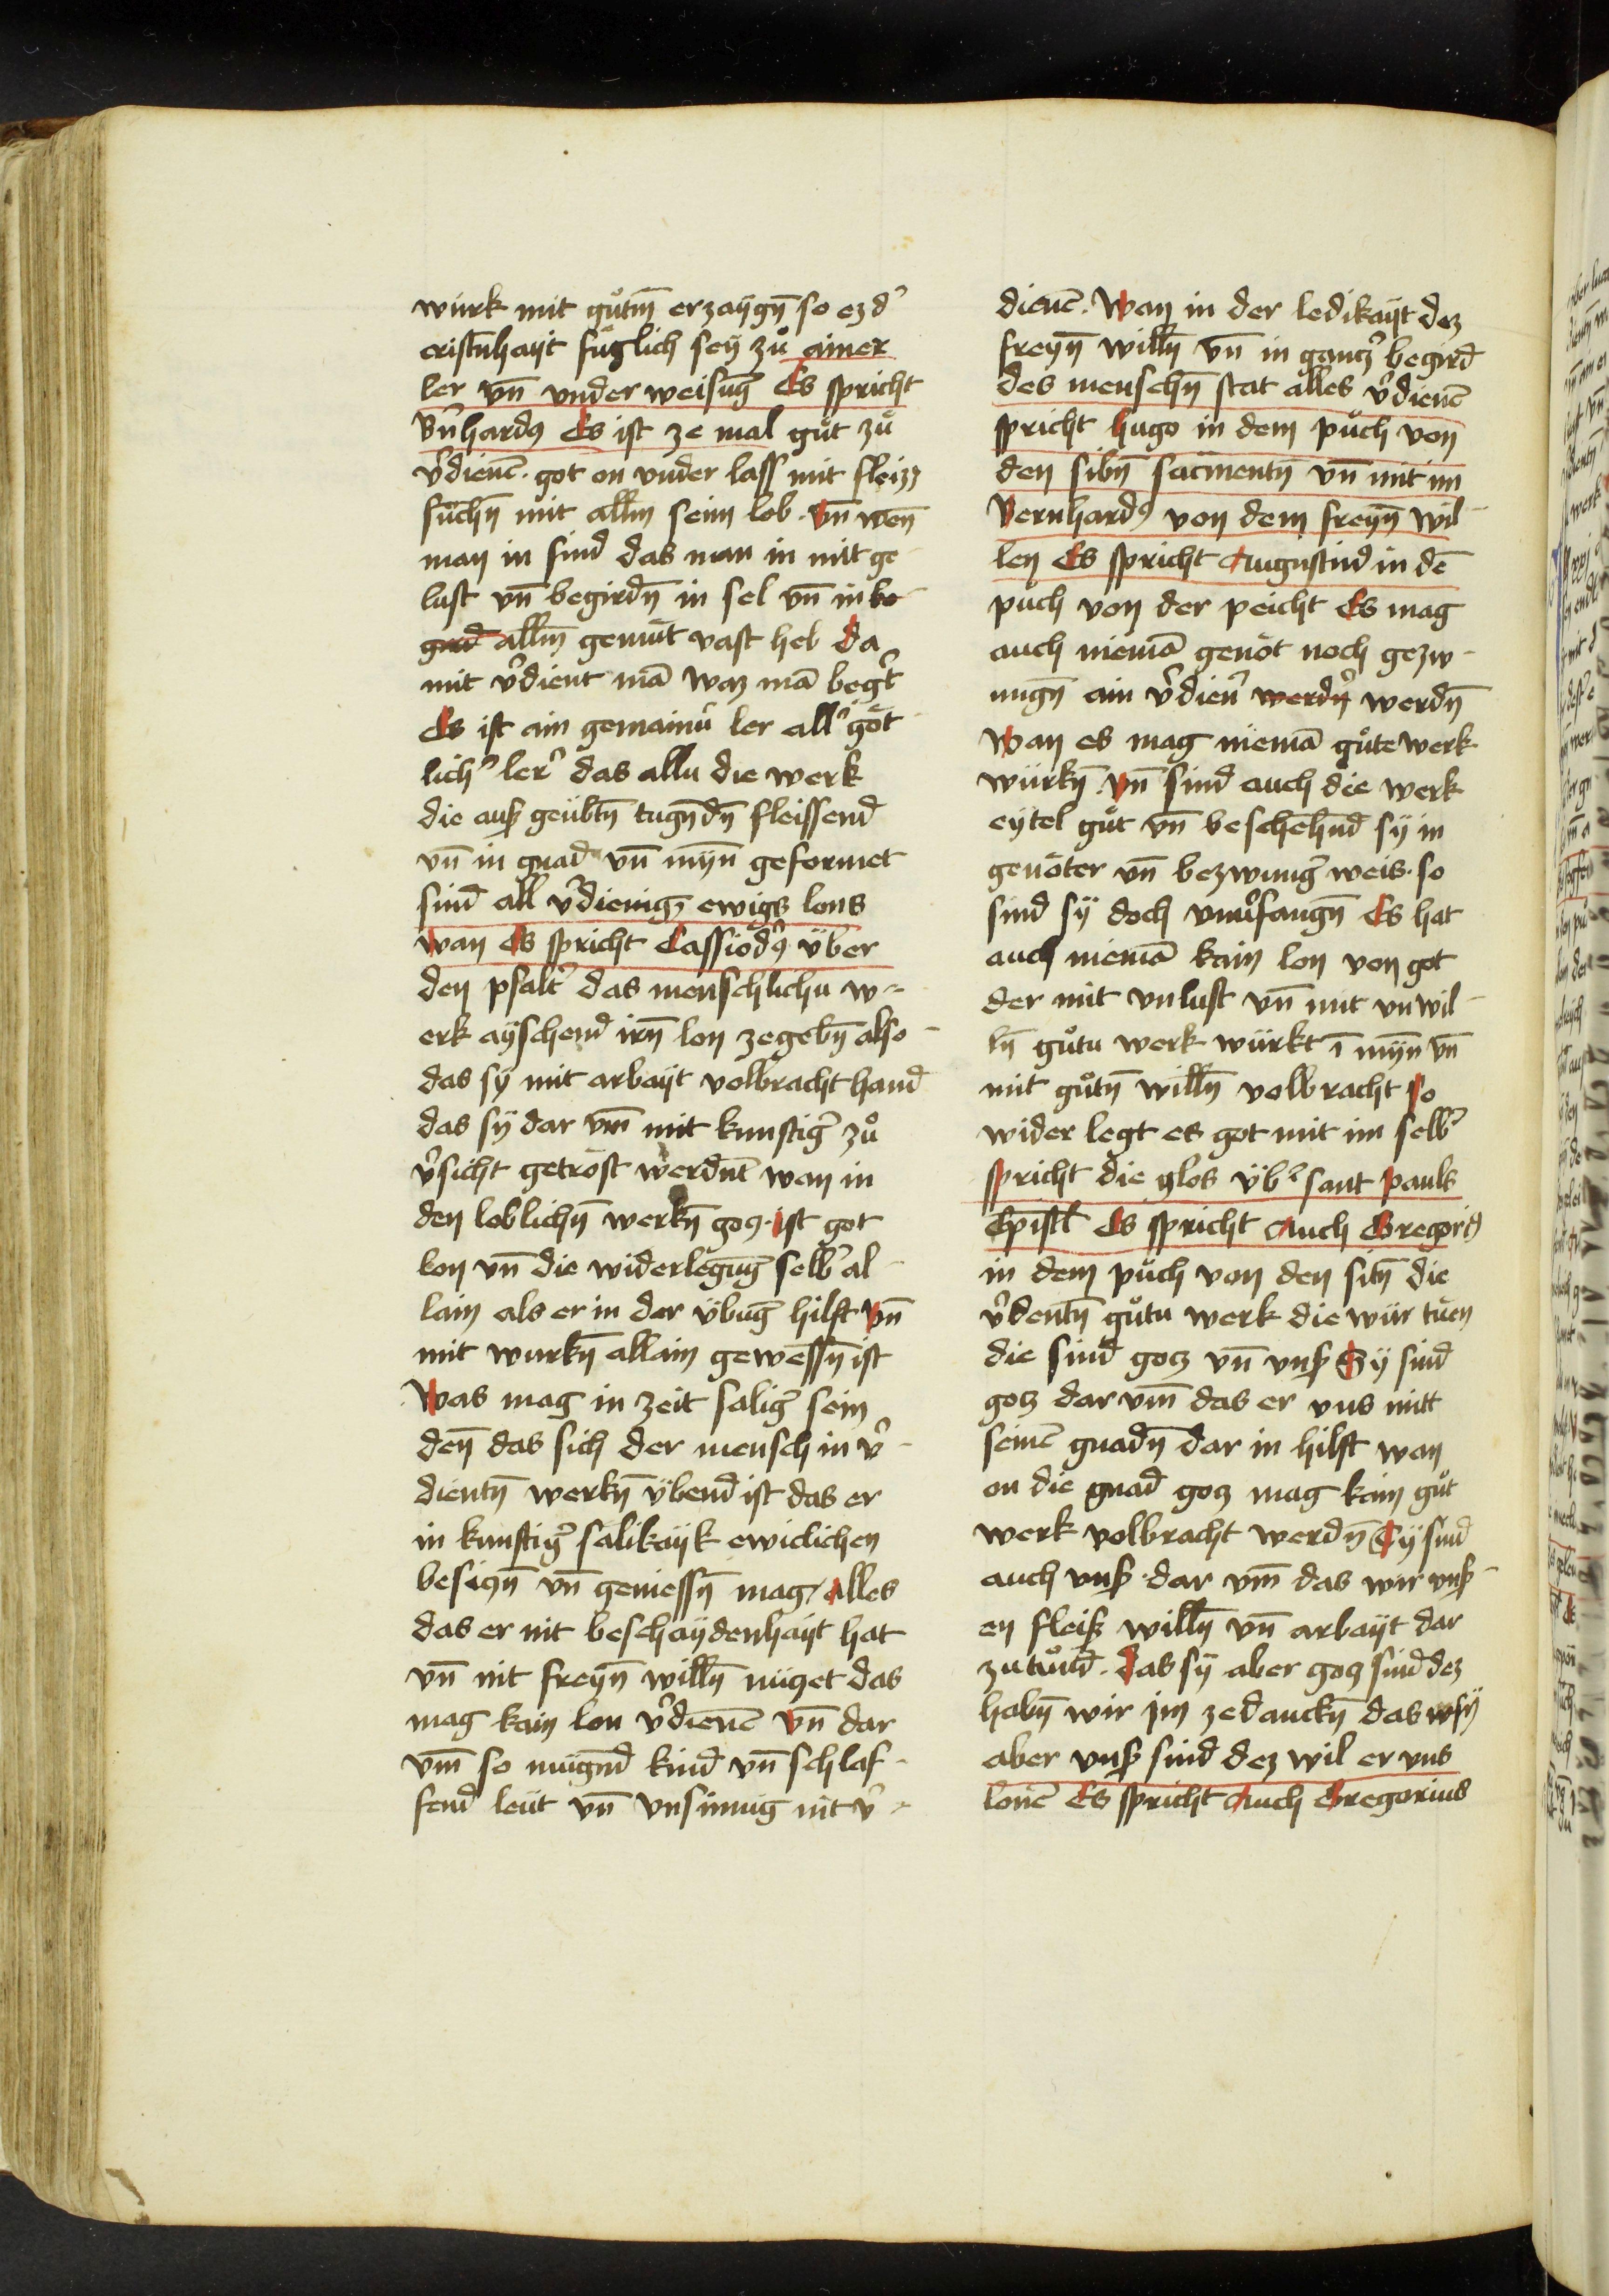 würk mit gůtm̄ erzaygn̄ so ez d'
cristn̄hayt fůglich sey zů ainer
ler vn̄ vnder weisūg Es spricht
Bn̄hardꝰ Es ist ze mal gůt zů
v'dienē · got on vnder lass mit fleizz
sůchn̄ mit allm̄ seim lob · vn̄ wen̄
man in find das man in mit ge
lust vn̄ begirdn̄ in sel vn̄ in be
gird allm̄ gemůt vast heb da
mit v'dient mā waz mā begt'
Es ist ain gemainü ler all' göt
lich' ler' das allu die werk
die auß geübtn̄ tugn̄dn̄ fleissend
vn̄ in gnad vn̄ myn̄ geformet
sind all v'dienig ewigs lons
wan Es spricht Cassiodꝰ über
den psalt' das menschlichu w
erk ayschend irn̄ lon zegebn̄ also
das sy mit arbayt volbracht hand
das sy dar vm̄ mit kunftig' zů
v'sicht getröst werdnt wan in
den loblichn̄ werkn̄ gocz · ist got
lon vn̄ die widerlegūg selb' al
lain als er in der übūg hilft vn̄
mit wurkn̄ allain gewessn̄ ist
Was mag in zeit salig' sein
den̄ das sich der mensch in v'
dientn̄ werkn̄ übend ist das er
in kunftig' salikayt ewiclichen
besiczn̄ vn̄ geniessn̄ mag / alles
das er nit beschaydenhayt hat
vn̄ nit freyn̄ willn̄ nüczet das
mag kain lon v'dienē vn̄ dar
vm̄ so mügnd kind vn̄ schlaf
fend leüt vn̄ vnsinnig nit v'
dienē · Wan in der ledikayt dez
freyn̄ willn̄ vn̄ in gantz' begird
des menschn̄ stat alles v'dienē
spricht hugo in dem půch von
den sibn̄ sacmentn̄ vn̄ mit im
Bernhardꝰ von dem freyn̄ wil
len Es spricht Augustinꝰ in dē
půch von der peicht Es mag
auch niemā genöt noch gezw
ungn̄ ain v'dien' werdn̄ werdn̄
Wan es mag niemā gůte werk
würkn̄ · vn̄ sind auch die werk
eytel gůt vn̄ beschehnd sy in
genöter vn̄ bezwung' weis · so
sind sy doch vnu'fangn̄ Es hat
auch niemā kain lon von got
der mit vnlust vn̄ mit vnwil
ln̄ gůtu werk würkt ī myn̄ vn̄
mit gůtn̄ willn̄ volbracht so
wider legt es got mit im selb'
spricht die glos üb' sant pauls
Epistl Es spricht Auch Gregoriꝰ
in dem půch von den sitn̄ die
v'dentn̄ gůtu werk die wür tůen
die sind gocz vn̄ vnß Sy sind
gocz dar vm̄ das er vns mitt
seinē gnadn̄ dar in hilft wan
on die gnad gocz mag kain gůt
werk volbracht werdn̄ Sy sind
auch vnß · dar vm̄ das wir vnß
en fleiß willn̄ vn̄ arbayt dar
zu tůnd · das sy aber gocz sind dez
habn̄ wir im zedanckn̄ das sy
aber vnß sind dez wil er vns
lonē Es spricht Auch Gregorius